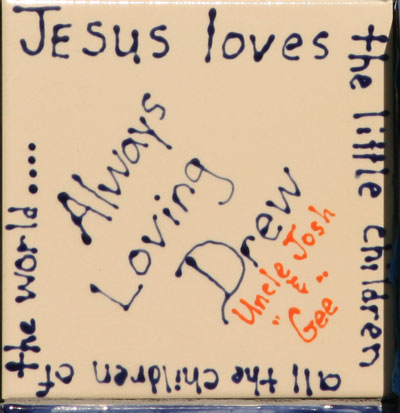 JESUS loves
the little children
all the children of
the world....
Always
Loving
Drew
Uncle Josh
&
"Gee"